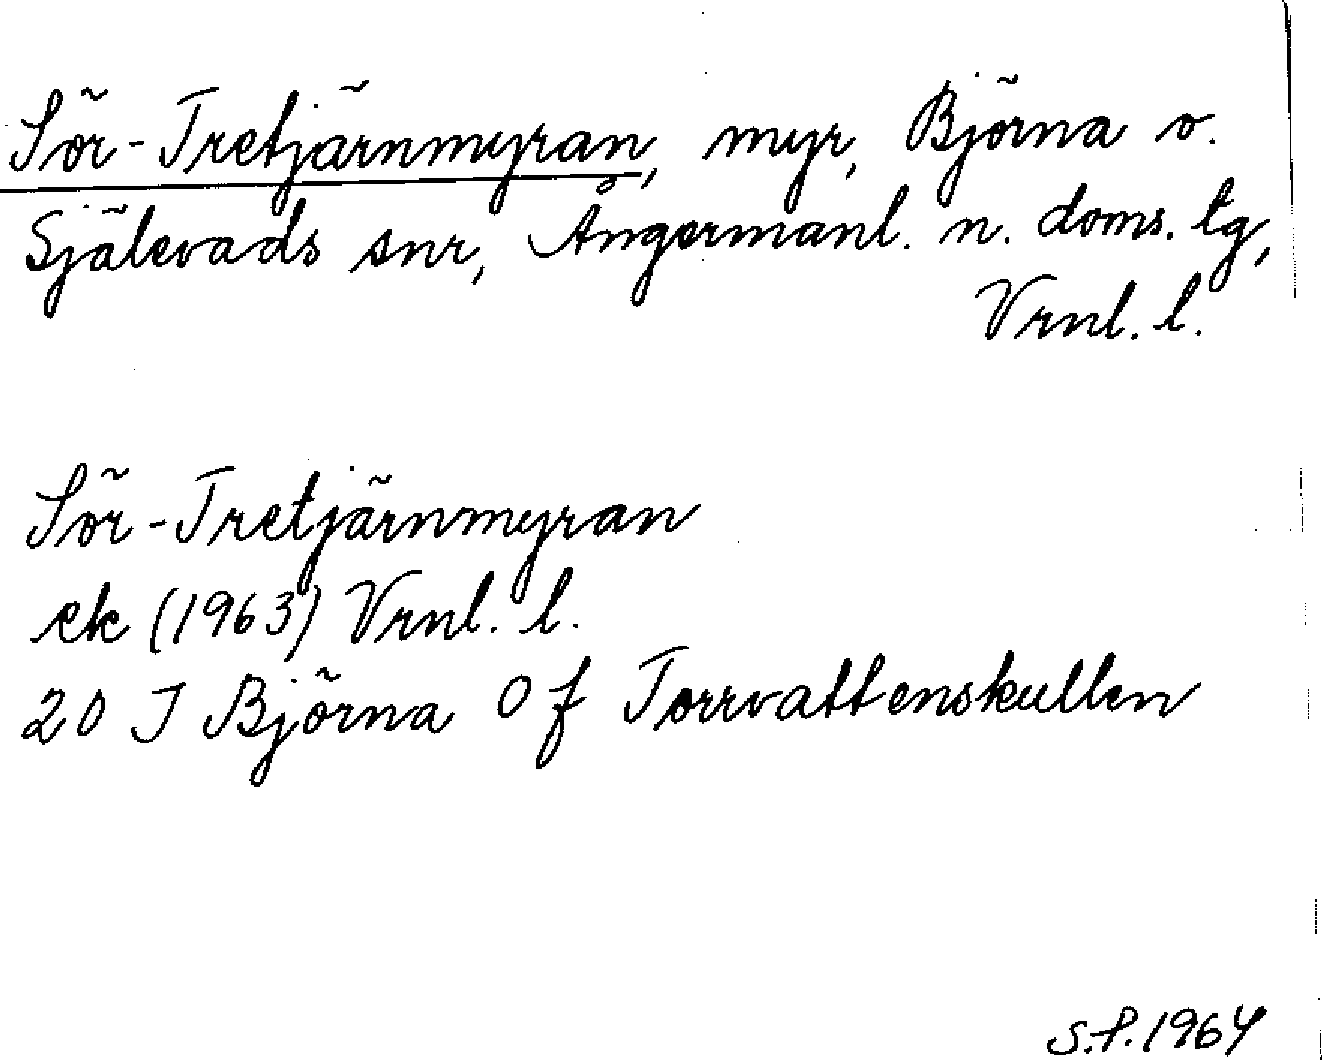 Sör-Tretjärnmyran, myr, Björna o.
Själevads snr, Ångermanl. n. doms. tg,
Vrnl. l.
Sör-Tretjärnmyran
ek (1963) Vrnl. l.
20 I Björna 0 f Torrvattenskullen
S.P. 1964